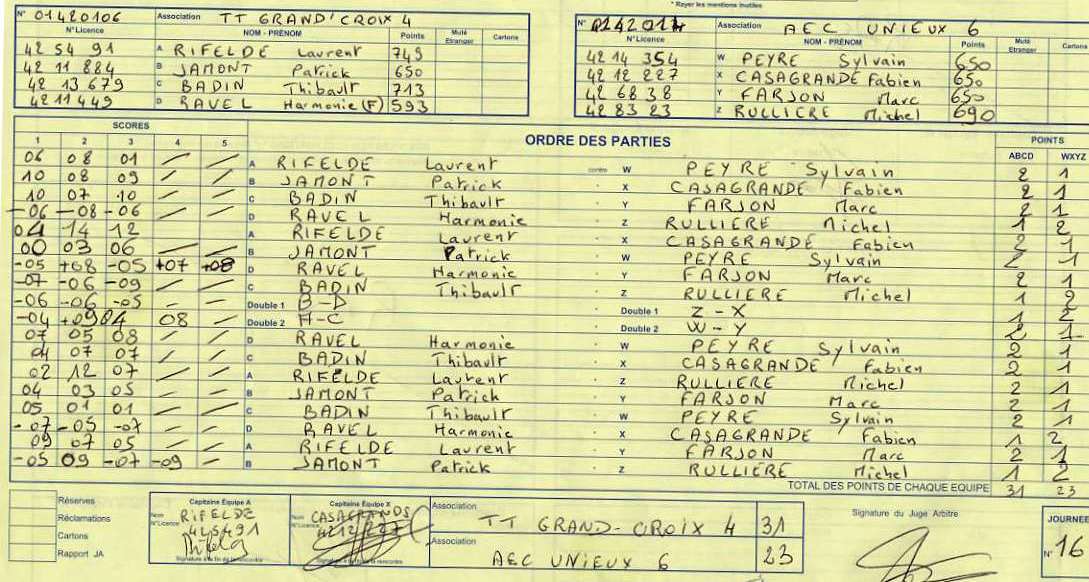 * Rayer les mentions inutiles
N° 01420106 Association TT GRAND'CROIX 4
N°Licence NOM - PRÉNOM Points Muté Etranger Cartons
42 54 91 A RIFELDE Laurent 749
42 11 884 B JAMONT Patrick 650
42 13 679 C BADIN Thibault 713
42 11 449 D RAVEL Harmonie (F) 593
N° Association AEC UNIEUX 6
N°Licence NOM - PRÉNOM Points Muté Etranger Cartons
42 14 354 W PEYRE Sylvain 650
42 12 227 X CASAGRANDE Fabien 650
42 68 38 Y FARJON Marc 650
42 83 23 Z RULLIERE Michel 690
SCORES ORDRE DES PARTIES POINTS
1 2 3 4 5 ABCD WXYZ
06 08 01 / / A RIFELDE Laurent contre W PEYRE Sylvain 2 1
10 08 09 / / B JAMONT Patrick X CASAGRANDE Fabien 2 1
10 07 10 / / C BADIN Thibault Y FARJON Marc 2 1
-06 -08 -06 / / D RAVEL Harmonie Z RULLIERE Michel 1 2
04 14 12 / / A RIFELDE Laurent X CASAGRANDE Fabien 2 1
00 03 06 / / B JAMONT Patrick W PEYRE Sylvain 2 1
-05 +08 -05 +07 +08 D RAVEL Harmonie Y FARJON Marc 2 1
-07 -06 -09 / / C BADIN Thibault Z RULLIERE Michel 1 2
-06 -06 -05 - - Double 1 B-D Double 1 Z-X 1 2
-04 +09 04 08 - Double 2 A-C Double 2 W-Y 2 1
07 05 08 / / D RAVEL Harmonie W PEYRE Sylvain 2 1
04 07 07 / / C BADIN Thibault X CASAGRANDE Fabien 2 1
02 12 07 / / A RIFELDE Laurent Z RULLIERE Michel 2 1
04 03 05 / / B JAMONT Patrick Y FARJON Marc 2 1
05 01 01 / / C BADIN Thibault W PEYRE Sylvain 2 1
-07 -05 -07 / / D RAVEL Harmonie X CASAGRANDE Fabien 1 2
09 07 05 / / A RIFELDE Laurent Y FARJON Marc 2 1
-05 09 -07 -09 - B JAMONT Patrick Z RULLIERE Michel 1 2
TOTAL DES POINTS DE CHAQUE EQUIPE 31 23
Réserves
Réclamations
Cartons
Rapport JA
Capitaine Equipe A
Nom RIFELDE
N°Licence 425491
Signature à la fin de la rencontre
Capitaine Equipe X
Nom
N°Licence 4212227
Association TT GRAND-CROIX 4 31
Association AEC UNIEUX 6 23
Signature du Juge Arbitre
JOURNEE
N° 16